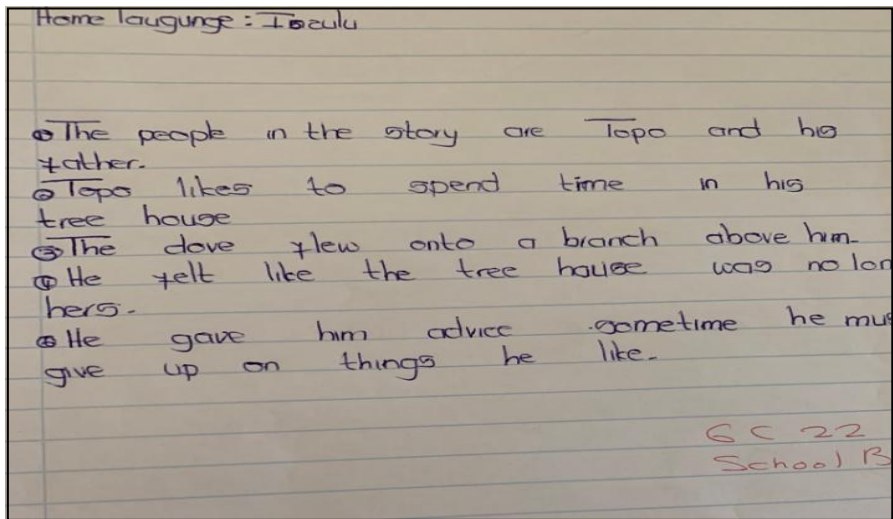 Home laugunge: Isizulu
① The people in the story are Topo and his
father.
② Topo likes to spend time in his
tree house
③ The dove flew onto a branch above him.
④ He felt like the tree house was no lon
hers.
⑤ He gave him advice .sometime he mus
give up on things he like.
6C 22
School B